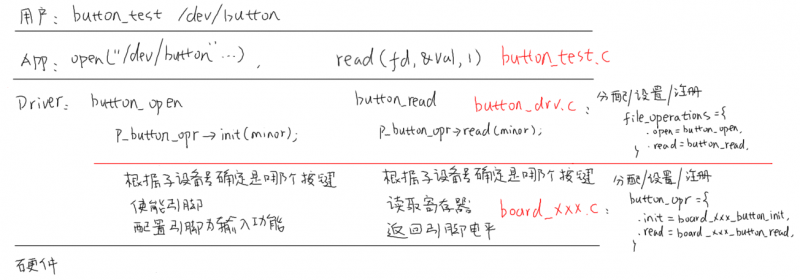 用户: button_test /dev/button
APP: open("/dev/button"...), read(fd,&val,1) button_test.c
Driver: button_open button_read button_drv.c: 分配/设置/注册
p_button_opr→init(minor); p_button_opr→read(minor);
file_operations={
.open=button_open,
.read=button_read,
}
根据子设备号确定是哪个按键 根据子设备号确定是哪个按键
使能引脚 读取寄存器
配置引脚为输入功能 返回引脚电平
board_xxx.c: 分配/设置/注册
button_opr={
.init=board_xxx_button_init,
.read=board_xxx_button_read,
}
硬件